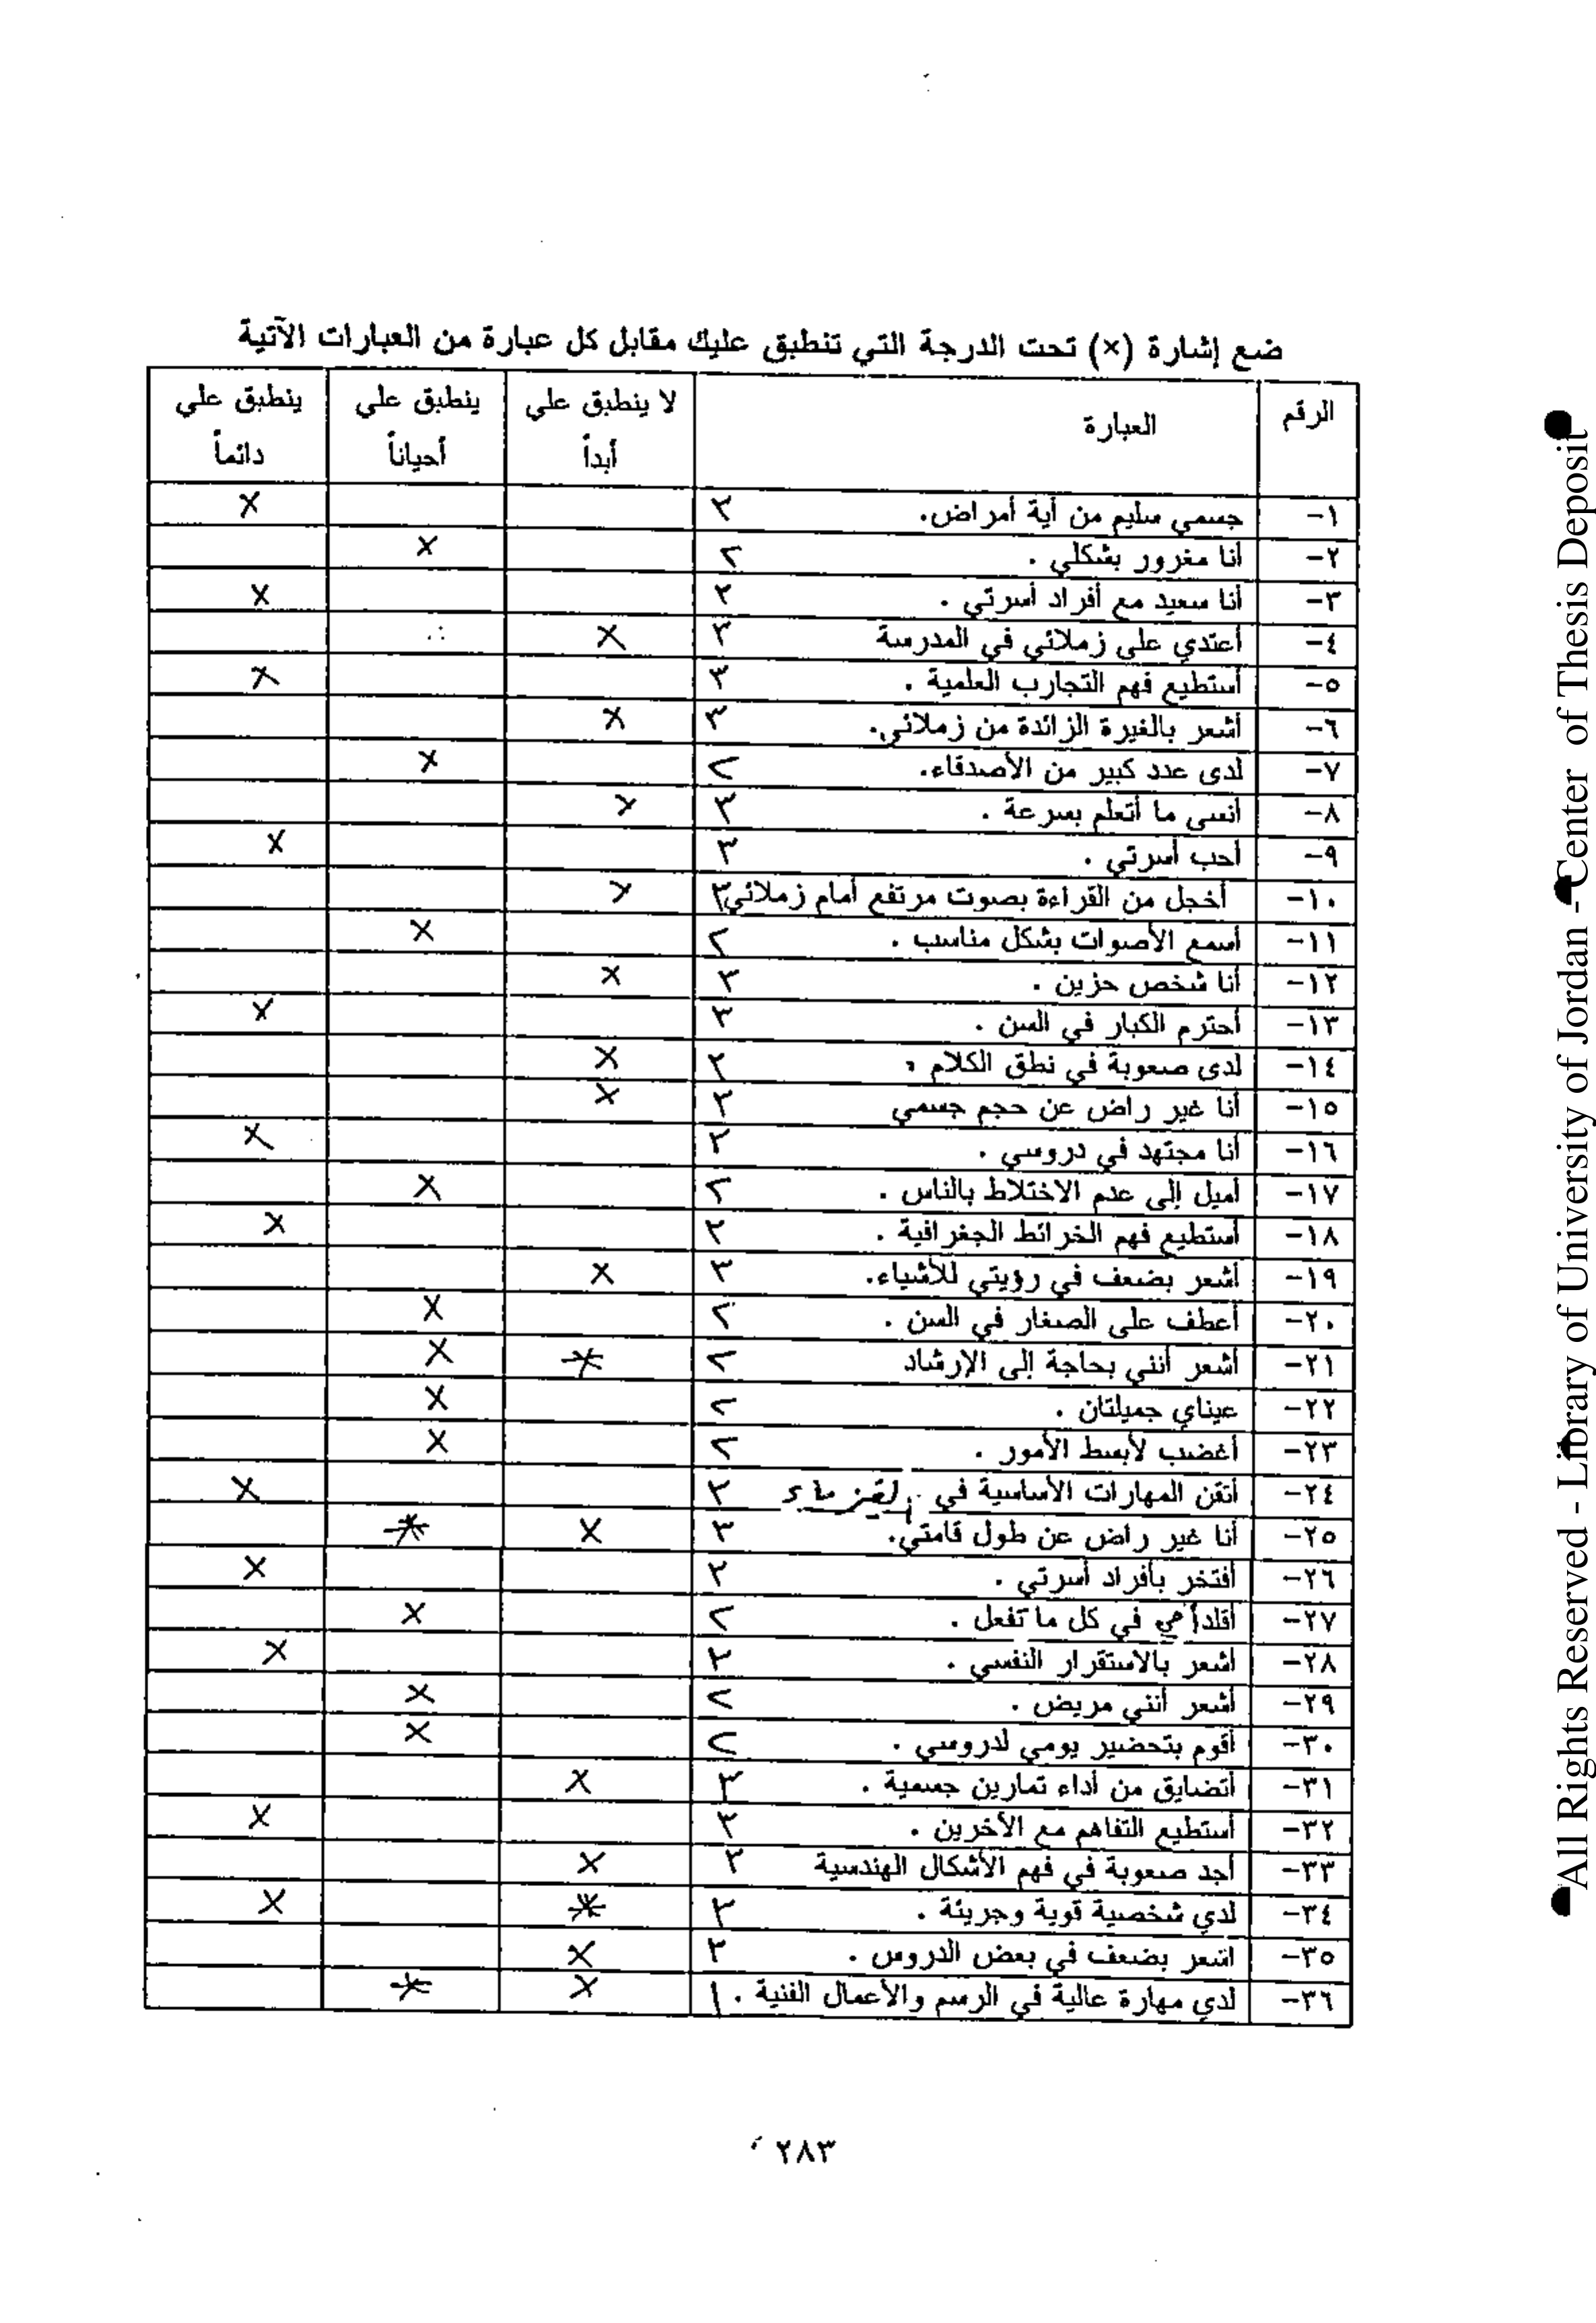 ضع إشارة (×) تحت الدرجة التي تنطبق عليك مقابل كل عبارة من العبارات الآتية
الرقم العبارة لا ينطبق علي أبداً ينطبق علي أحياناً ينطبق علي دائماً
١- جسمي سليم من أية أمراض. ٣ ×
٢- أنا مغرور بشكلي . ٢ ×
٣- أنا سعيد مع أفراد أسرتي . ٣ ×
٤- أعتدي على زملائي في المدرسة ٣ ×
٥- أستطيع فهم التجارب العلمية . ٣ ×
٦- أشعر بالغيرة الزائدة من زملائي. ٣ ×
٧- لدى عدد كبير من الأصدقاء. ٢ ×
٨- أنسى ما أتعلم بسرعة . ٣ ×
٩- أحب أسرتي . ٣ ×
١٠- أخجل من القراءة بصوت مرتفع أمام زملائي ٣ ×
١١- أسمع الأصوات بشكل مناسب . ٢ ×
١٢- أنا شخص حزين . ٣ ×
١٣- أحترم الكبار في السن . ٣ ×
١٤- لدى صعوبة في نطق الكلام . ٣ ×
١٥- أنا غير راض عن حجم جسمي ٣ ×
١٦- أنا مجتهد في دروسي . ٣ ×
١٧- أميل إلى عدم الاختلاط بالناس . ٢ ×
١٨- أستطيع فهم الخرائط الجغرافية . ٣ ×
١٩- أشعر بضعف في رؤيتي للأشياء. ٣ ×
٢٠- أعطف على الصغار في السن . ٢ ×
٢١- أشعر أنني بحاجة إلى الإرشاد ٢ × ×
٢٢- عيناي جميلتان . ٢ ×
٢٣- أغضب لأبسط الأمور . ٢ ×
٢٤- أتقن المهارات الأساسية في ٣ ×
٢٥- أنا غير راض عن طول قامتي. ٣ × ×
٢٦- أفتخر بأفراد أسرتي . ٣ ×
٢٧- أقلد أمي في كل ما تفعل . ٢ ×
٢٨- اشعر بالاستقرار النفسي . ٣ ×
٢٩- أشعر أنني مريض . ٢ ×
٣٠- أقوم بتحضير يومي لدروسي . ٢ ×
٣١- أتضايق من أداء تمارين جسمية . ٣ ×
٣٢- أستطيع التفاهم مع الآخرين . ٣ ×
٣٣- أجد صعوبة في فهم الأشكال الهندسية ٣ ×
٣٤- لدي شخصية قوية وجريئة . ٣ × ×
٣٥- اشعر بضعف في بعض الدروس . ٣ ×
٣٦- لدي مهارة عالية في الرسم والأعمال الفنية . ١ × ×
٢٨٣
All Rights Reserved - Library of University of Jordan - Center of Thesis Deposit